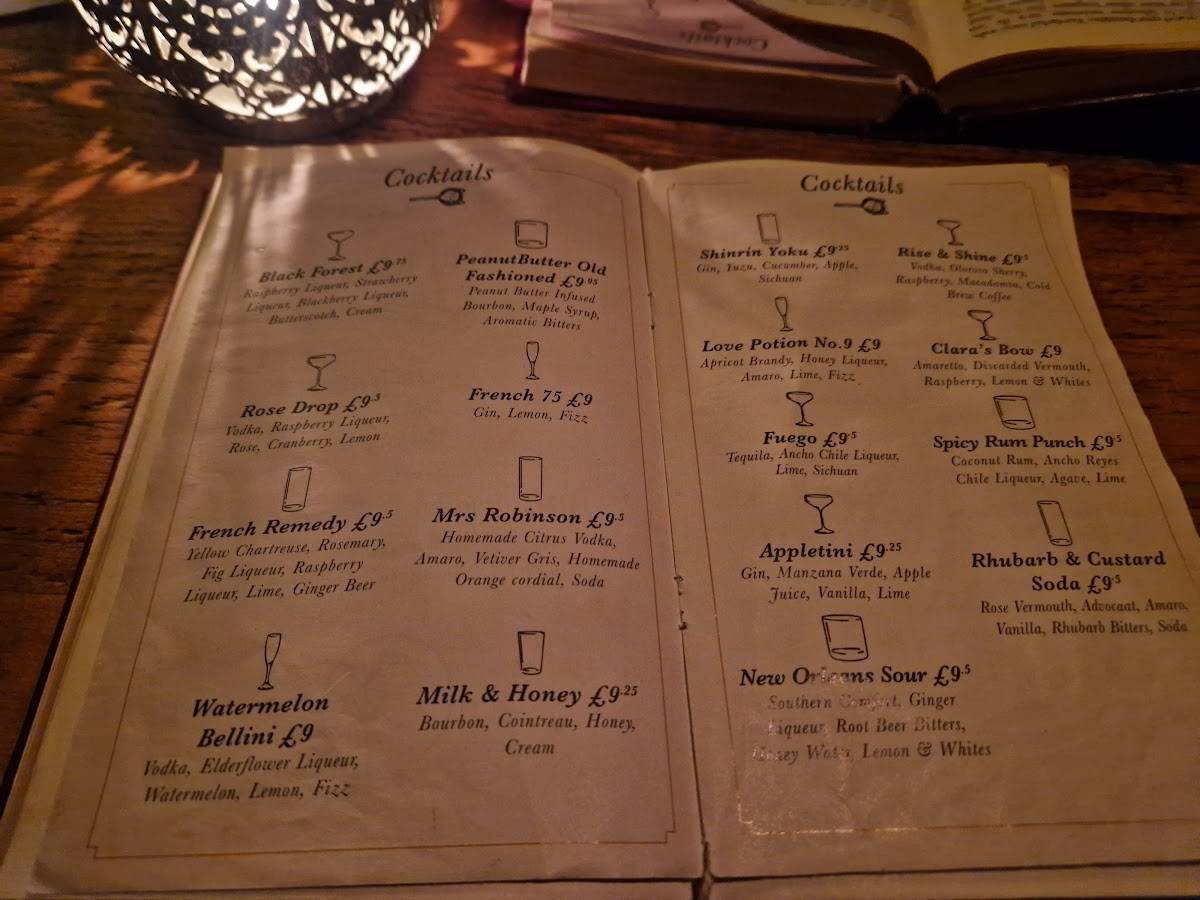 Cocktails
Cocktails
Black Forest £9.75
Raspberry Liqueur, Strawberry
Liqueur, Blackberry Liqueur,
Butterscotch, Cream
PeanutButter Old
Fashioned £9.95
Peanut Butter Infused
Bourbon, Maple Syrup,
Aromatic Bitters
Rose Drop £9.5
Vodka, Raspberry Liqueur,
Rose, Cranberry, Lemon
French 75 £9
Gin, Lemon, Fizz
French Remedy £9.5
Yellow Chartreuse, Rosemary,
Fig Liqueur, Raspberry
Liqueur, Lime, Ginger Beer
Mrs Robinson £9.5
Homemade Citrus Vodka,
Amaro, Vetiver Gris, Homemade
Orange cordial, Soda
Watermelon
Bellini £9
Vodka, Elderflower Liqueur,
Watermelon, Lemon, Fizz
Milk & Honey £9.25
Bourbon, Cointreau, Honey,
Cream
Cocktails
Shinrin Yoku £9.25
Gin, Yuzu, Cucumber, Apple,
Sichuan
Rise & Shine £9.5
Vodka, Oloroso Sherry,
Raspberry, Macadamia, Cold
Brew Coffee
Love Potion No.9 £9
Apricot Brandy, Honey Liqueur,
Amaro, Lime, Fizz
Clara's Bow £9
Amaretto, Discarded Vermouth,
Raspberry, Lemon & Whites
Fuego £9.5
Tequila, Ancho Chile Liqueur,
Lime, Sichuan
Spicy Rum Punch £9.5
Coconut Rum, Ancho Reyes
Chile Liqueur, Agave, Lime
Appletini £9.25
Gin, Manzana Verde, Apple
Juice, Vanilla, Lime
Rhubarb & Custard
Soda £9.5
Rose Vermouth, Advocaat, Amaro,
Vanilla, Rhubarb Bitters, Soda
New Orleans Sour £9.5
Southern Comfort, Ginger
Liqueur, Root Beer Bitters,
Honey Water, Lemon & Whites